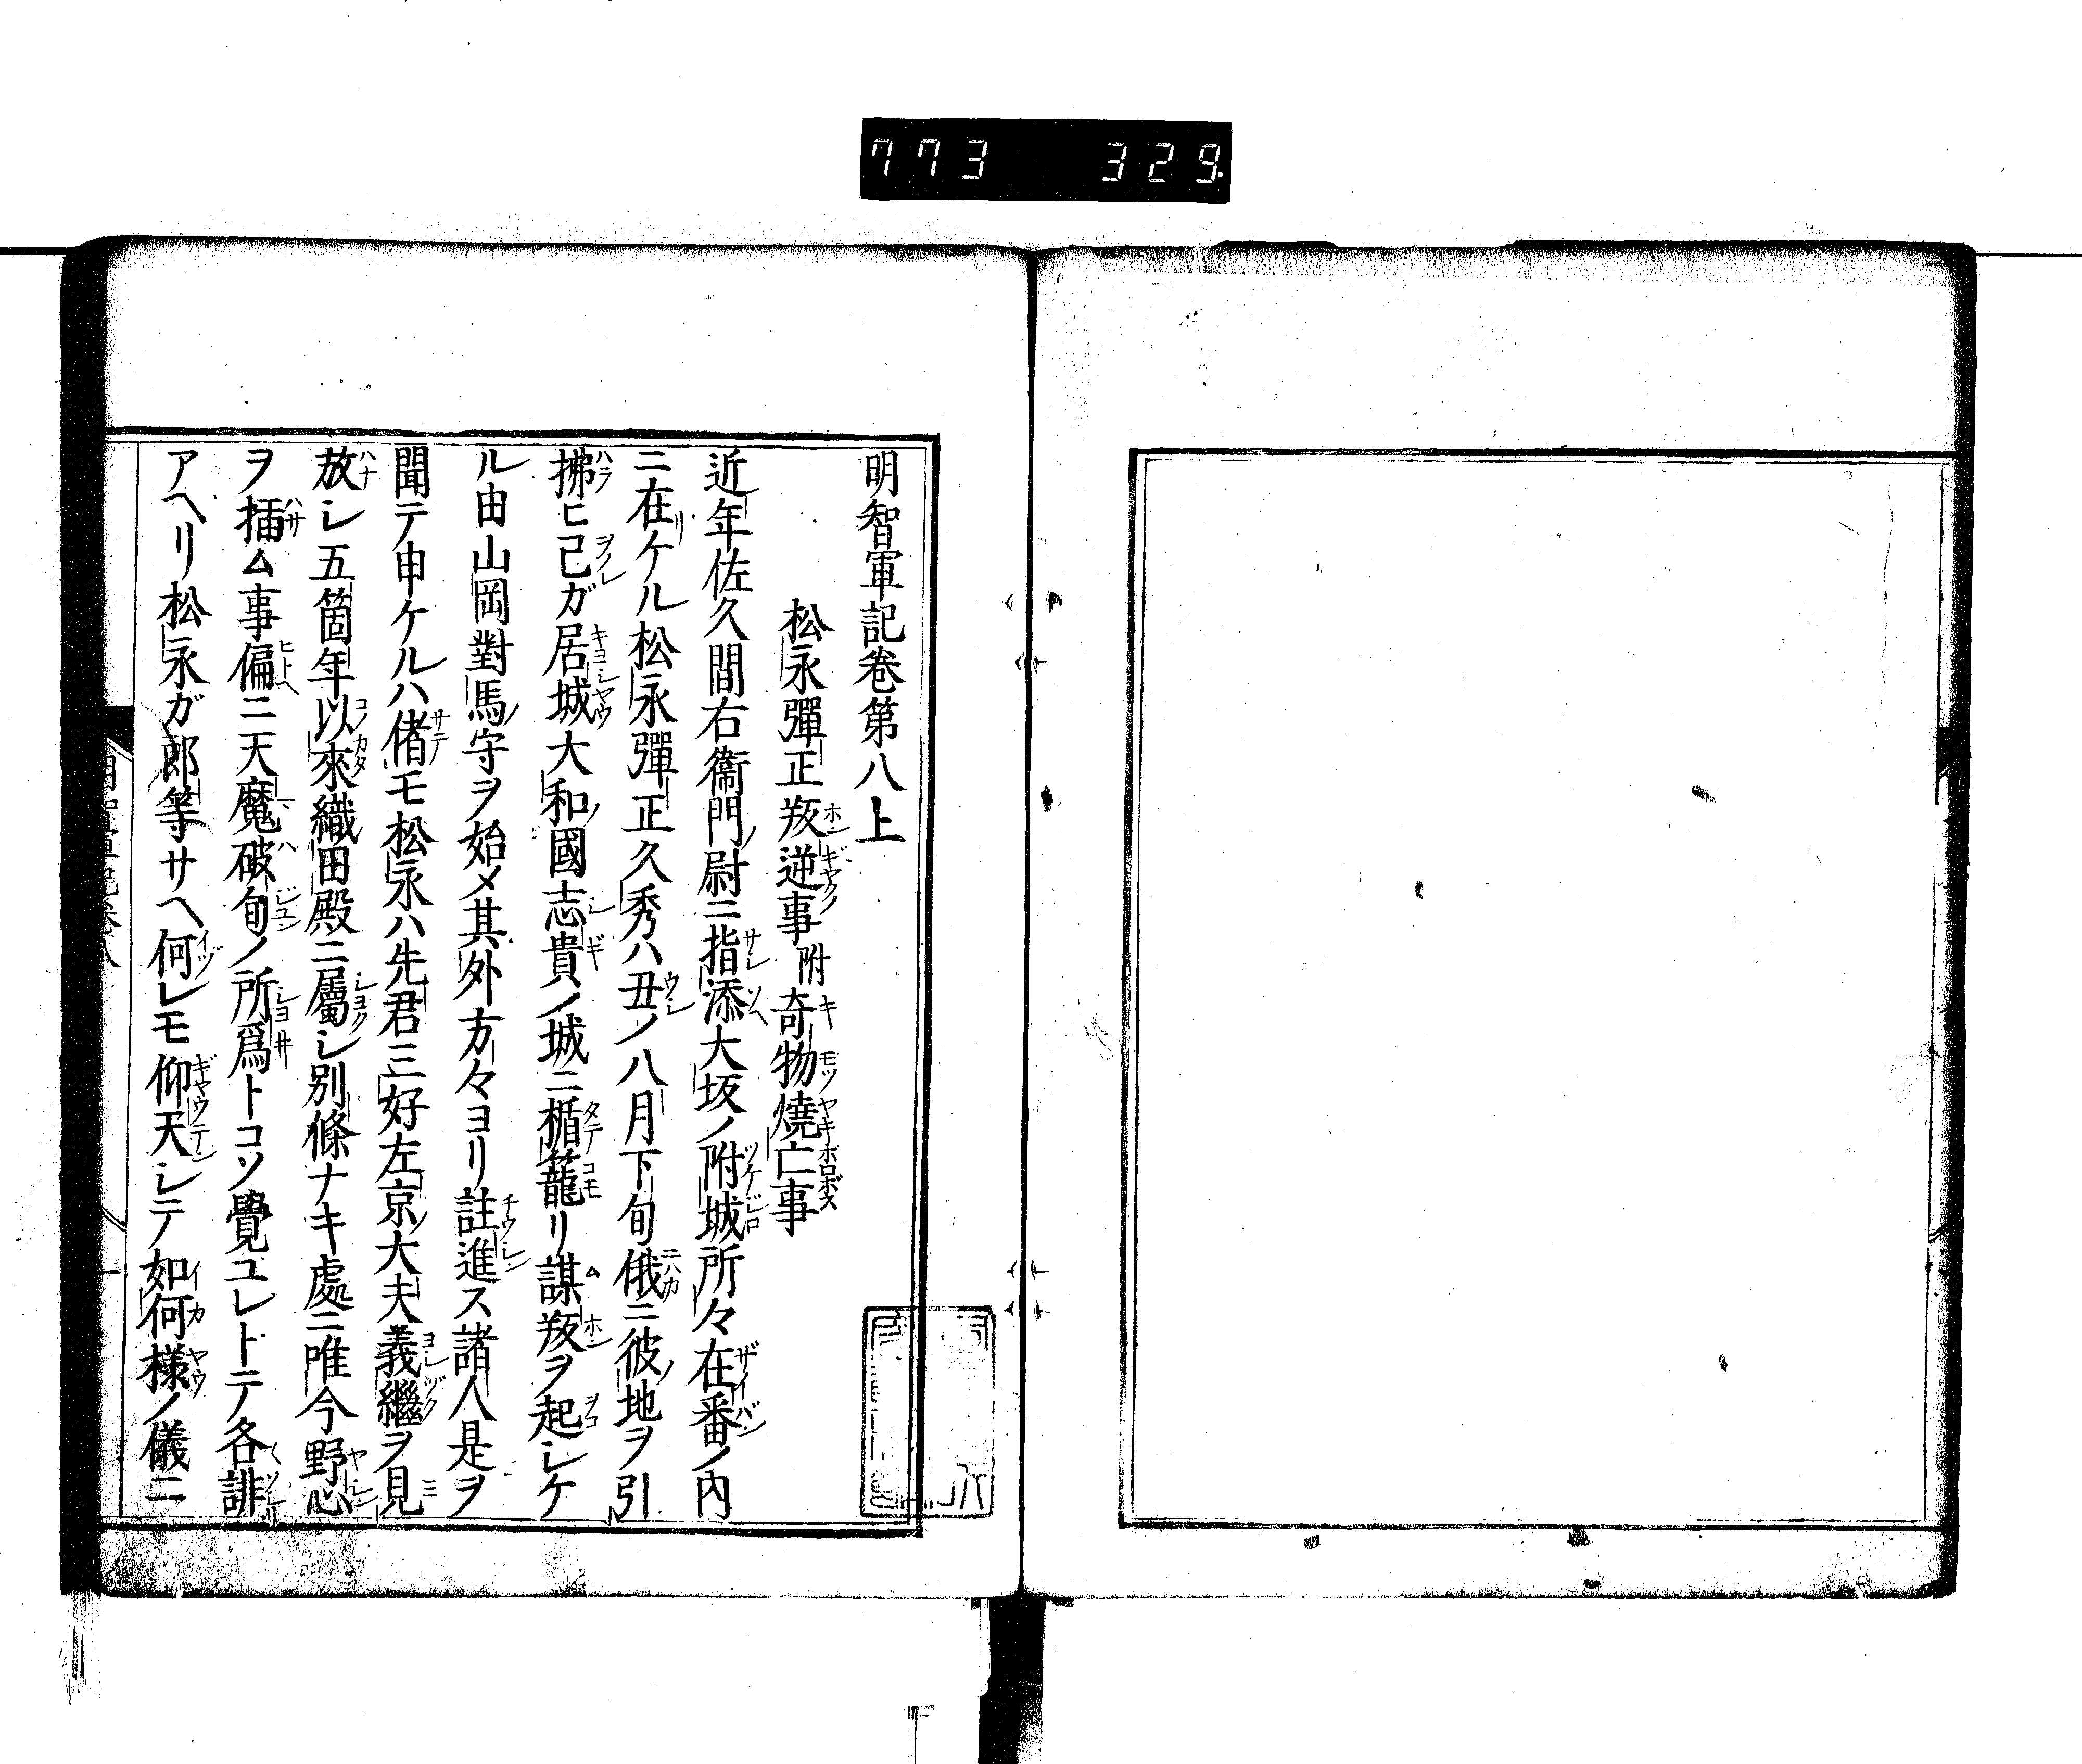 773 329
明智軍記巻第八上
松永彈正叛逆事附奇物燒亡事
近年佐久間右衞門尉ニ指添大坂ノ附城所々在番ノ内
ニ在ケル松永彈正久秀ハ丑ノ八月下旬俄ニ彼地ヲ引
拂ヒ己ガ居城大和國志貴ノ城ニ楯籠リ謀叛ヲ起シケ
ル由山岡對馬守ヲ始メ其外方々ヨリ註進ス諸人是ヲ
聞テ申ケルハ偖モ松永ハ先君三好左京大夫義繼ヲ見
放シ五箇年以來織田殿ニ屬シ別條ナキ處ニ唯今野心
ヲ插ム事偏ニ天魔破旬ノ所爲トコソ覺ユレトテ各誹
アヘリ松永ガ郎等サヘ何レモ仰天シテ如何樣ノ儀ニ